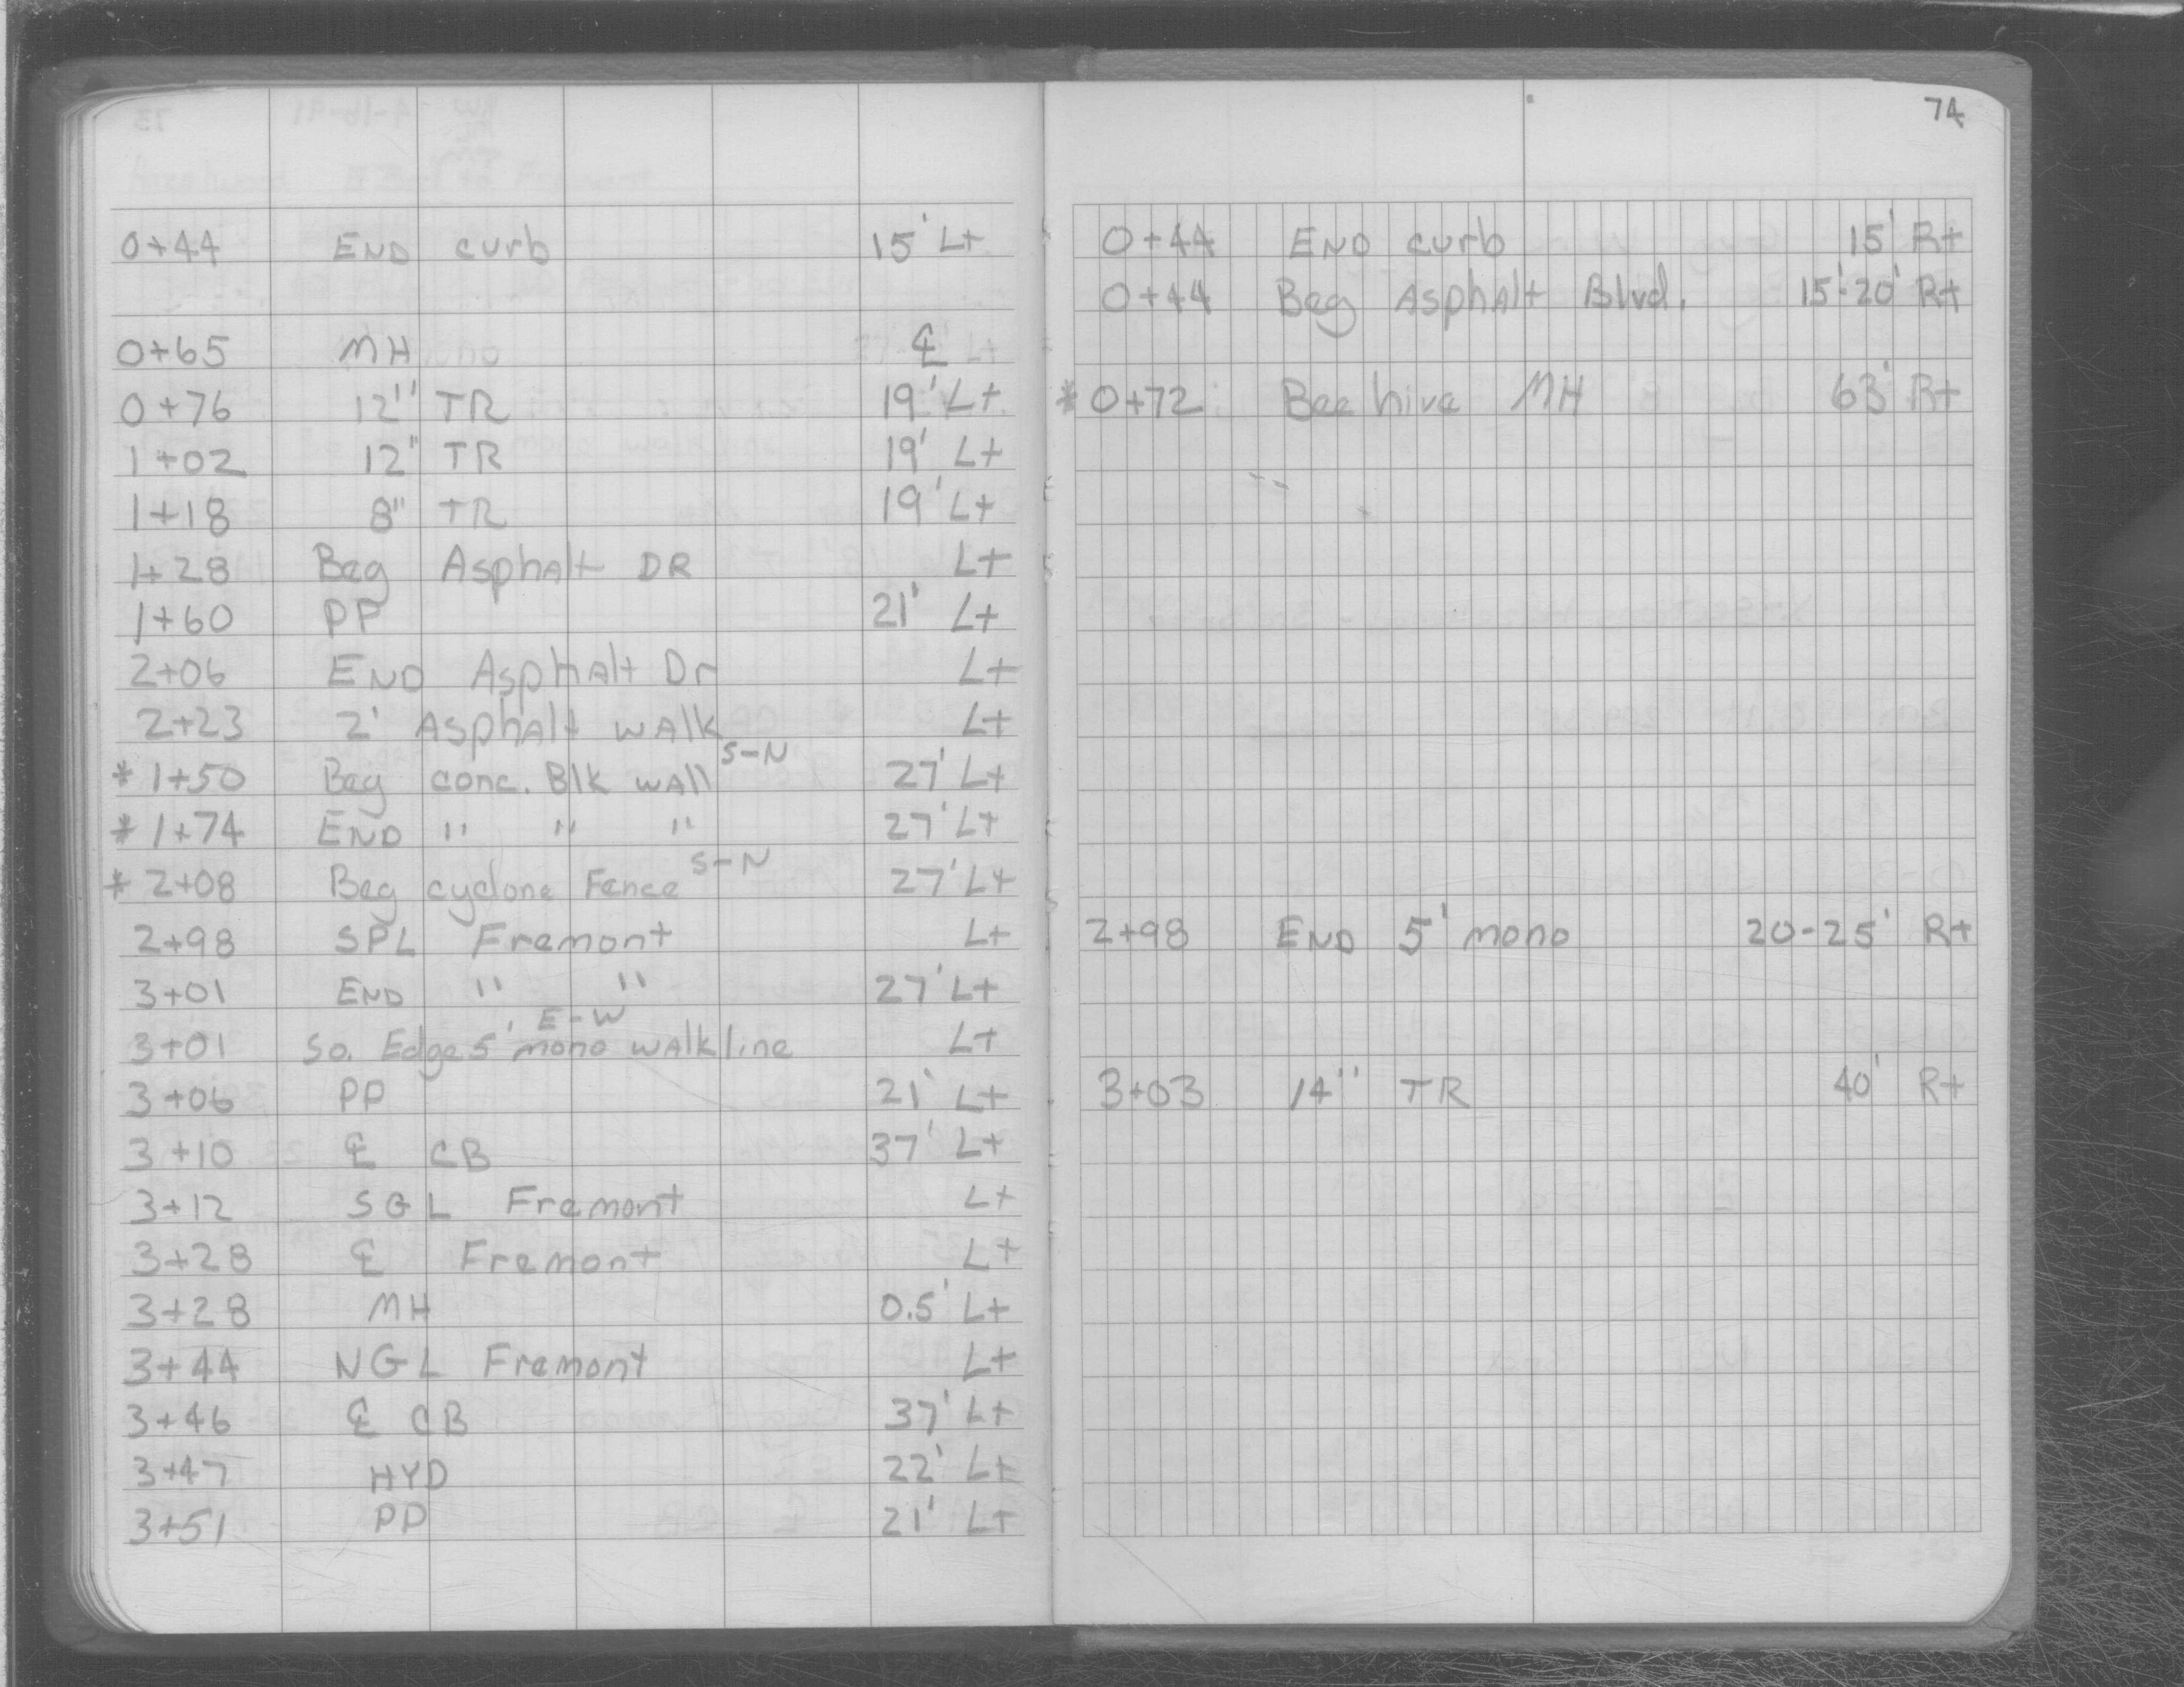 0+44 END curb 15' Lt
0+65 MH ℄
0+76 12" TR 19' Lt
1+02 12" TR 19' Lt
1+18 8" TR 19' Lt
1+28 Beg Asphalt DR Lt
1+60 PP 21' Lt
2+06 END Asphalt Dr Lt
2+23 2' Asphalt walk Lt
* 1+50 Beg conc. Blk wall S-N 27' Lt
* 1+74 END " " " 27' Lt
* 2+08 Beg cyclone Fence S-N 27' Lt
2+98 SPL Fremont Lt
3+01 END " " 27' Lt
3+01 So. Edge 5' mono walk line E-W Lt
3+06 PP 21' Lt
3+10 ℄ CB 37' Lt
3+12 SGL Fremont Lt
3+28 ℄ Fremont Lt
3+28 MH 0.5' Lt
3+44 NGL Fremont Lt
3+46 ℄ CB 37' Lt
3+47 HYD 22' Lt
3+51 PP 21' Lt
74
0+44 END curb 15' Rt
0+44 Beg Asphalt Blvd. 15'-20' Rt
* 0+72 Beehive MH 63' Rt
2+98 END 5' mono 20-25' Rt
3+03 14" TR 40' Rt